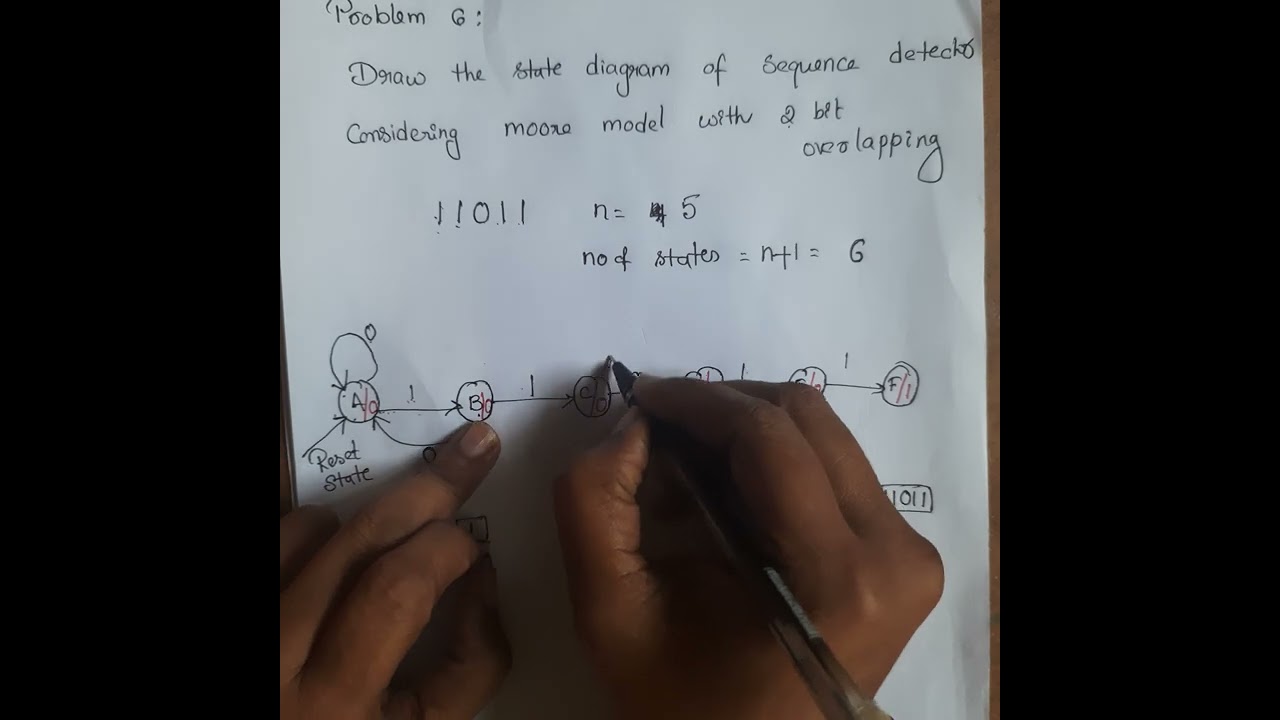 Problem 6:
Draw the state diagram of sequence detector
Considering moore model with 2 bit
overlapping
11011 n= 5
no of states = n+1 = 6
0
1 1 1 1
A/0 B/0 C/0 F/1
0
Reset
State
11011
1